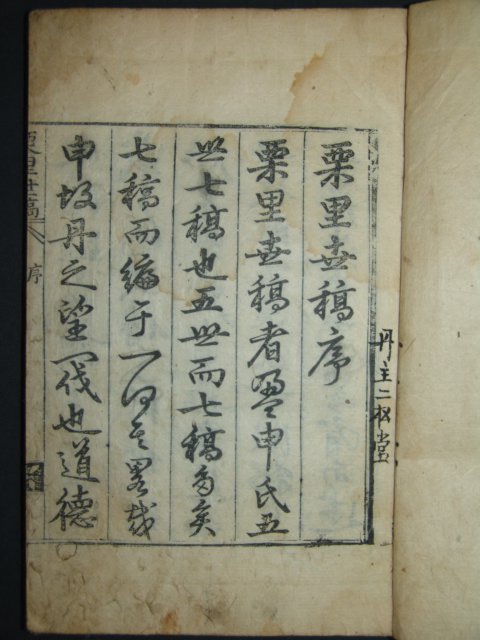 丹主二松堂
栗里世稿序
栗里世稿者申氏五
世七稿也五世而七稿多矣
七稿而編于一何其畧哉
申故丹之望閥也道德
栗里世稿 序